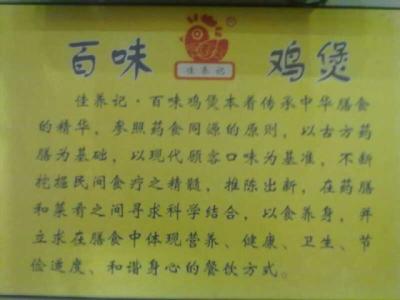 百味 鸡煲
佳养记
佳养记·百味鸡煲本着传承中华膳食
的精华，参照药食同源的原则，以古方药
膳为基础，以现代顾客口味为基准，不断
挖掘民间食疗之精髓，推陈出新，在药膳
和菜肴之间寻求科学结合，以食养身，并
立求在膳食中体现营养、健康、卫生、节
俭适度、和谐身心的餐饮方式。